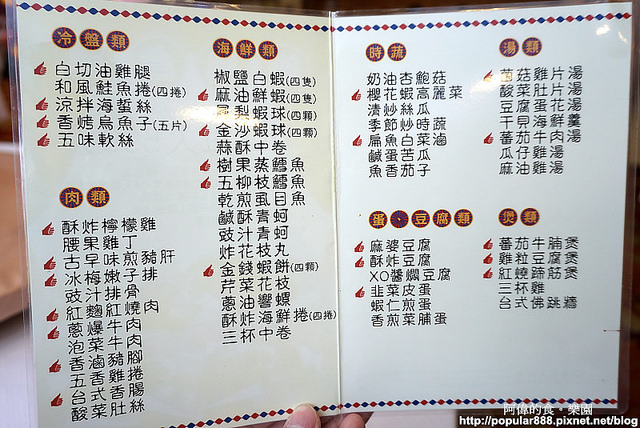 冷盤類
白切油雞腿
和風鮭魚捲(四捲)
涼拌海蜇絲
香烤烏魚子(五片)
五味軟絲
肉類
酥炸檸檬雞
腰果雞丁
古早味煎豬肝
冰梅嫩子排
豉汁排骨
紅麴紅燒肉
蔥爆牛肉
泡菜牛肉
香滷豬腳
五香雞捲
台式香腸
酸菜肚絲
海鮮類
椒鹽白蝦(四隻)
麻油鮮蝦(四隻)
鳳梨蝦球(四顆)
金沙蝦球(四顆)
蒜酥中卷
樹果蒸鱈魚
五柳枝鱈魚
乾煎虱目魚
鹹酥青蚵
豉汁青蚵
炸花枝丸
金錢蝦餅(四顆)
芹菜花枝
蔥油響螺
酥炸海鮮捲(四捲)
三杯中卷
時蔬
奶油杏鮑菇
櫻花蝦高麗菜
清炒絲瓜
季節炒時蔬
扁魚白菜滷
鹹蛋苦瓜
魚香茄子
蛋、豆腐類
麻婆豆腐
酥炸豆腐
XO醬燜豆腐
韭菜皮蛋
蝦仁煎蛋
香煎菜脯蛋
湯類
菌菇雞片湯
酸菜肚片湯
豆腐蛋花湯
干貝海鮮羹
番茄牛肉湯
瓜仔雞湯
麻油雞湯
煲類
番茄牛腩煲
雞粒豆腐煲
紅燒蹄筋煲
三杯雞
台式佛跳牆
阿偉的食。樂園
http://popular888.pixnet.net/blog